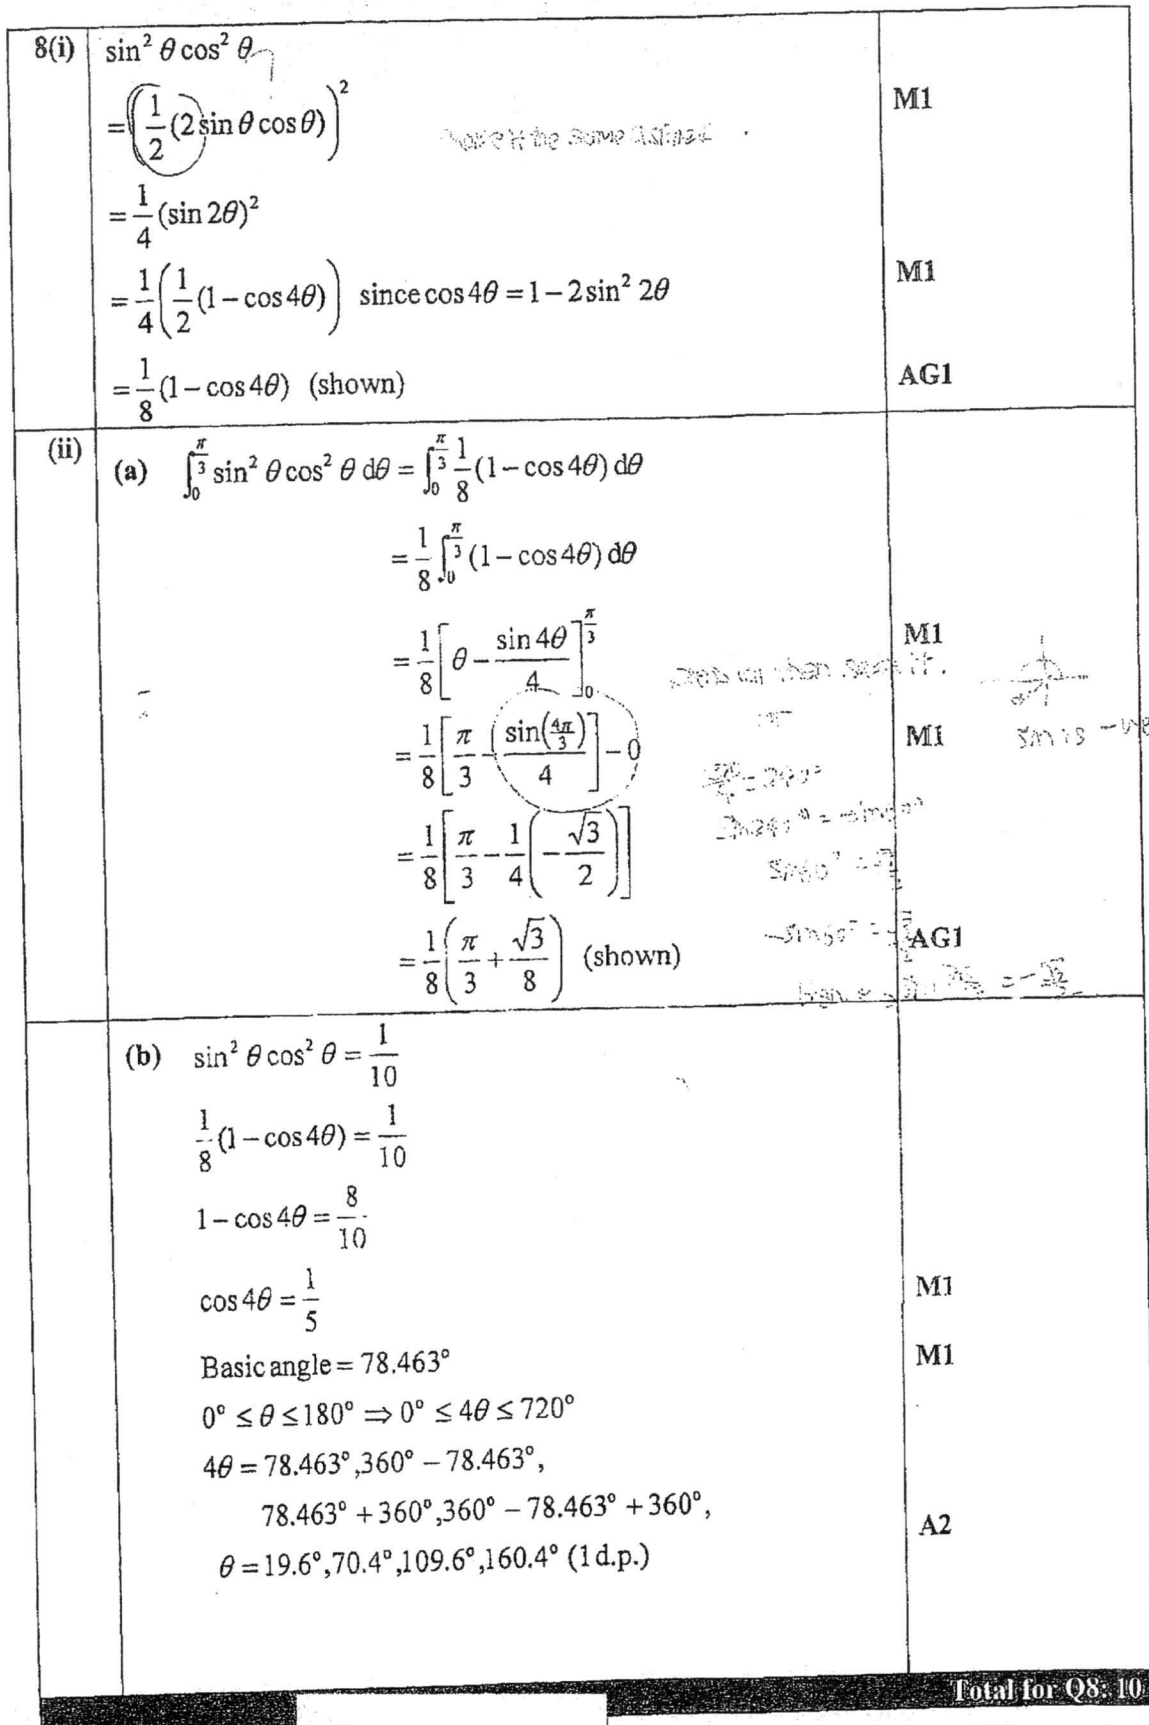 8(i) sin² θ cos² θ
= (1/2 (2 sin θ cos θ))² M1
= 1/4 (sin 2θ)²
= 1/4 (1/2 (1 − cos 4θ)) since cos 4θ = 1 − 2 sin² 2θ M1
= 1/8 (1 − cos 4θ) (shown) AG1
(ii) (a) ∫₀^(π/3) sin² θ cos² θ dθ = ∫₀^(π/3) 1/8 (1 − cos 4θ) dθ
= 1/8 ∫₀^(π/3) (1 − cos 4θ) dθ
= 1/8 [θ − sin 4θ / 4]₀^(π/3) M1
= 1/8 [π/3 − sin(4π/3) / 4] − 0 M1
sin is −ve
= 1/8 [π/3 − 1/4 (−√3/2)]
= 1/8 (π/3 + √3/8) (shown) AG1
(b) sin² θ cos² θ = 1/10
1/8 (1 − cos 4θ) = 1/10
1 − cos 4θ = 8/10
cos 4θ = 1/5 M1
Basic angle = 78.463° M1
0° ≤ θ ≤ 180° ⇒ 0° ≤ 4θ ≤ 720°
4θ = 78.463°, 360° − 78.463°,
78.463° + 360°, 360° − 78.463° + 360°,
A2
θ = 19.6°, 70.4°, 109.6°, 160.4° (1 d.p.)
Total for Q8: 10